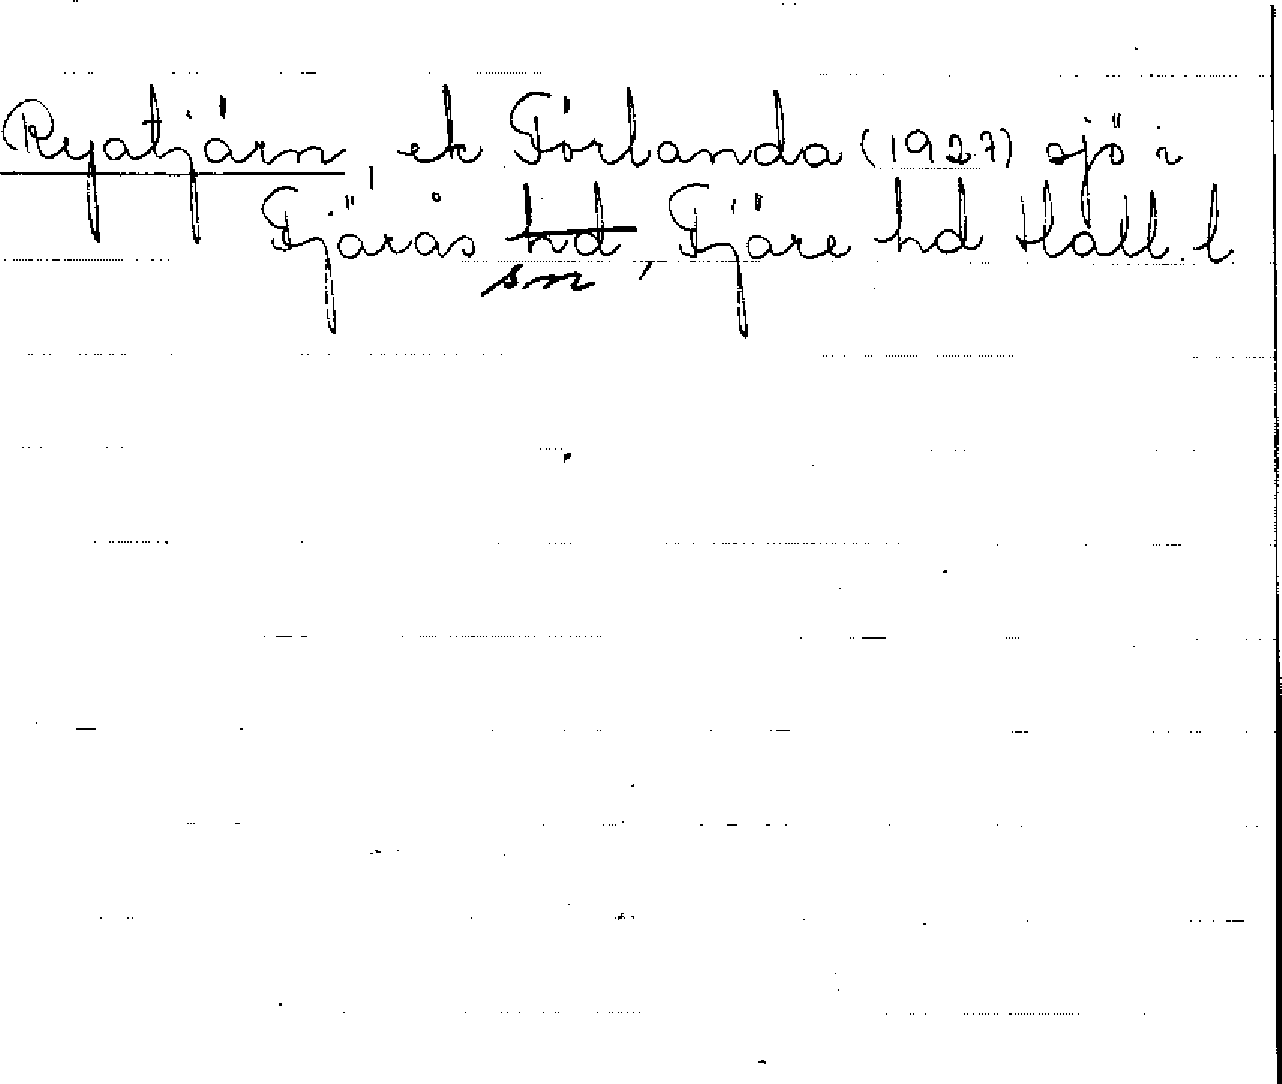 Ryatjärn, ek Förlanda (1927) sjö i
Fjärås hd, Fjäre hd Hall. l
sn